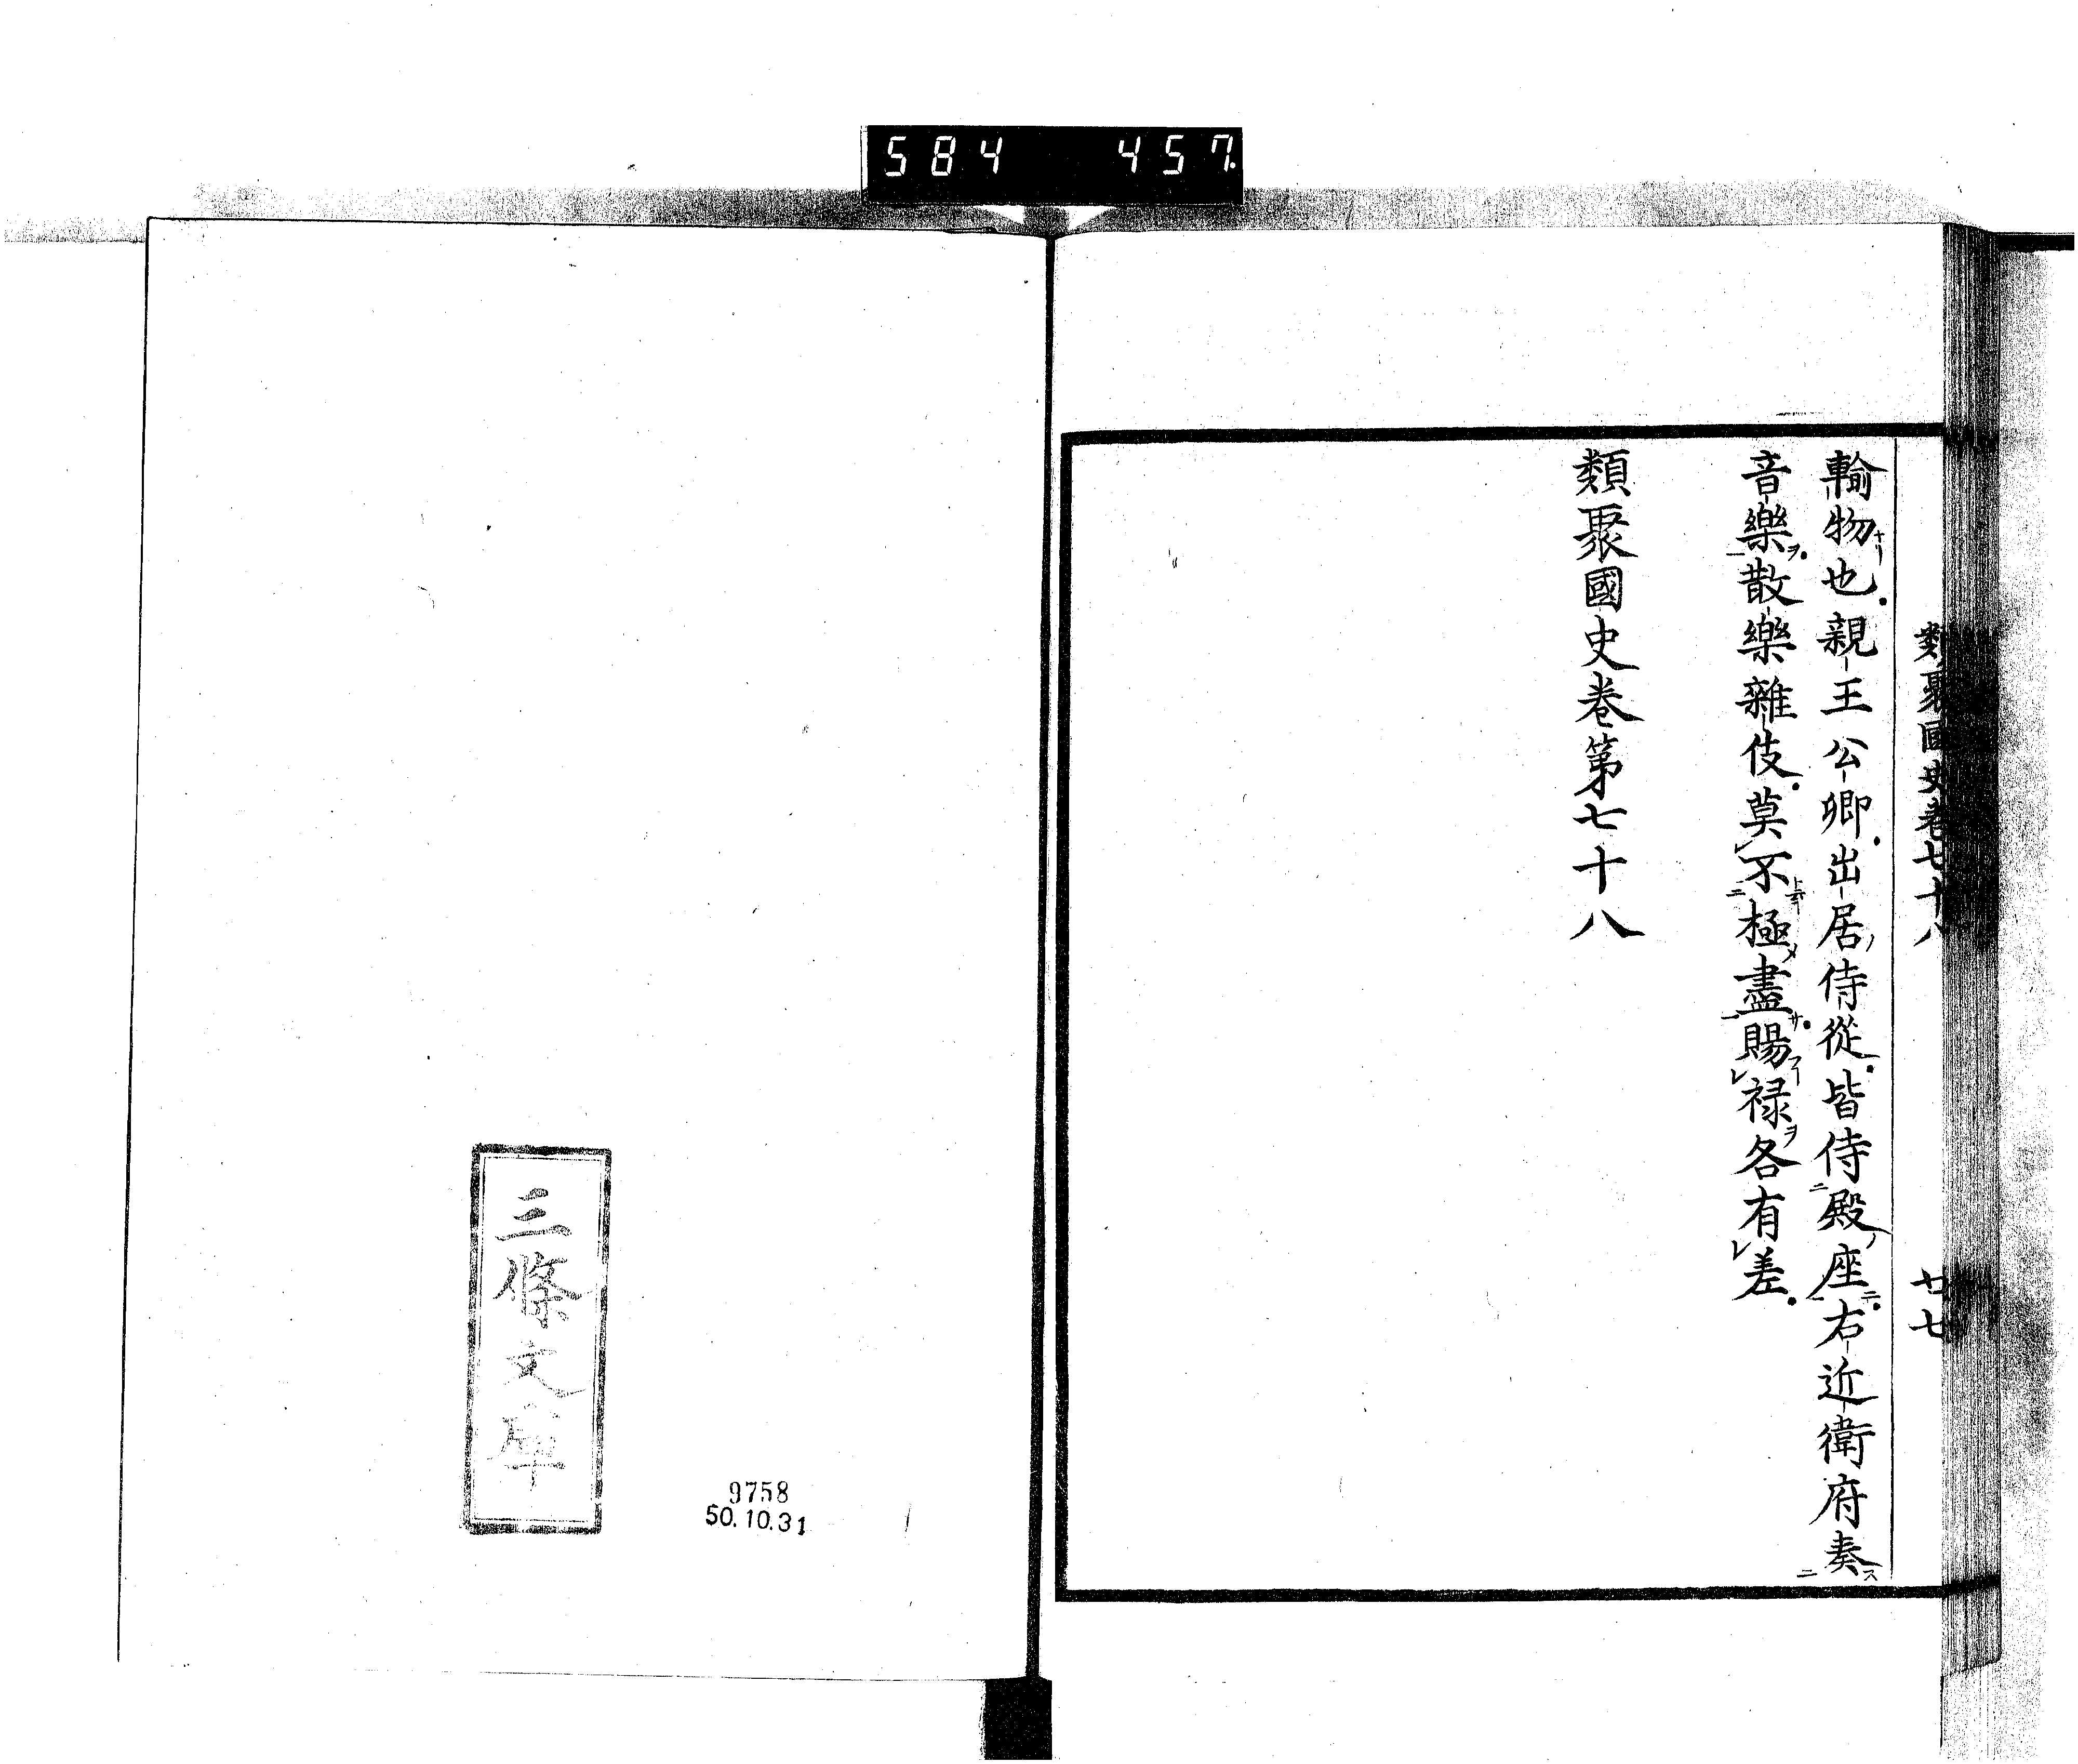 584 457.
類聚國史卷七十八 廿七
輸物也親王公卿出居侍從皆侍殿座右近衛府奏
音樂散樂雜伎莫不極盡賜祿各有差
類聚國史卷第七十八
三條文庫
9758
50.10.31